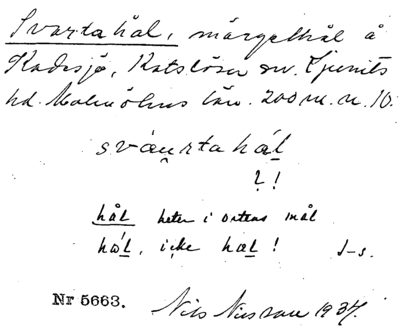 Svartahål, märgelhål å
Kadesjö, Katslösa sn. Ljunits
hd. Malmöhus län. 200 m. n. 10.
sváu̯rtahál
? !
hål heter i ortens mål
hál, icke hæl ! J-s.
Nr 5663. Nils Nilsson 1937.